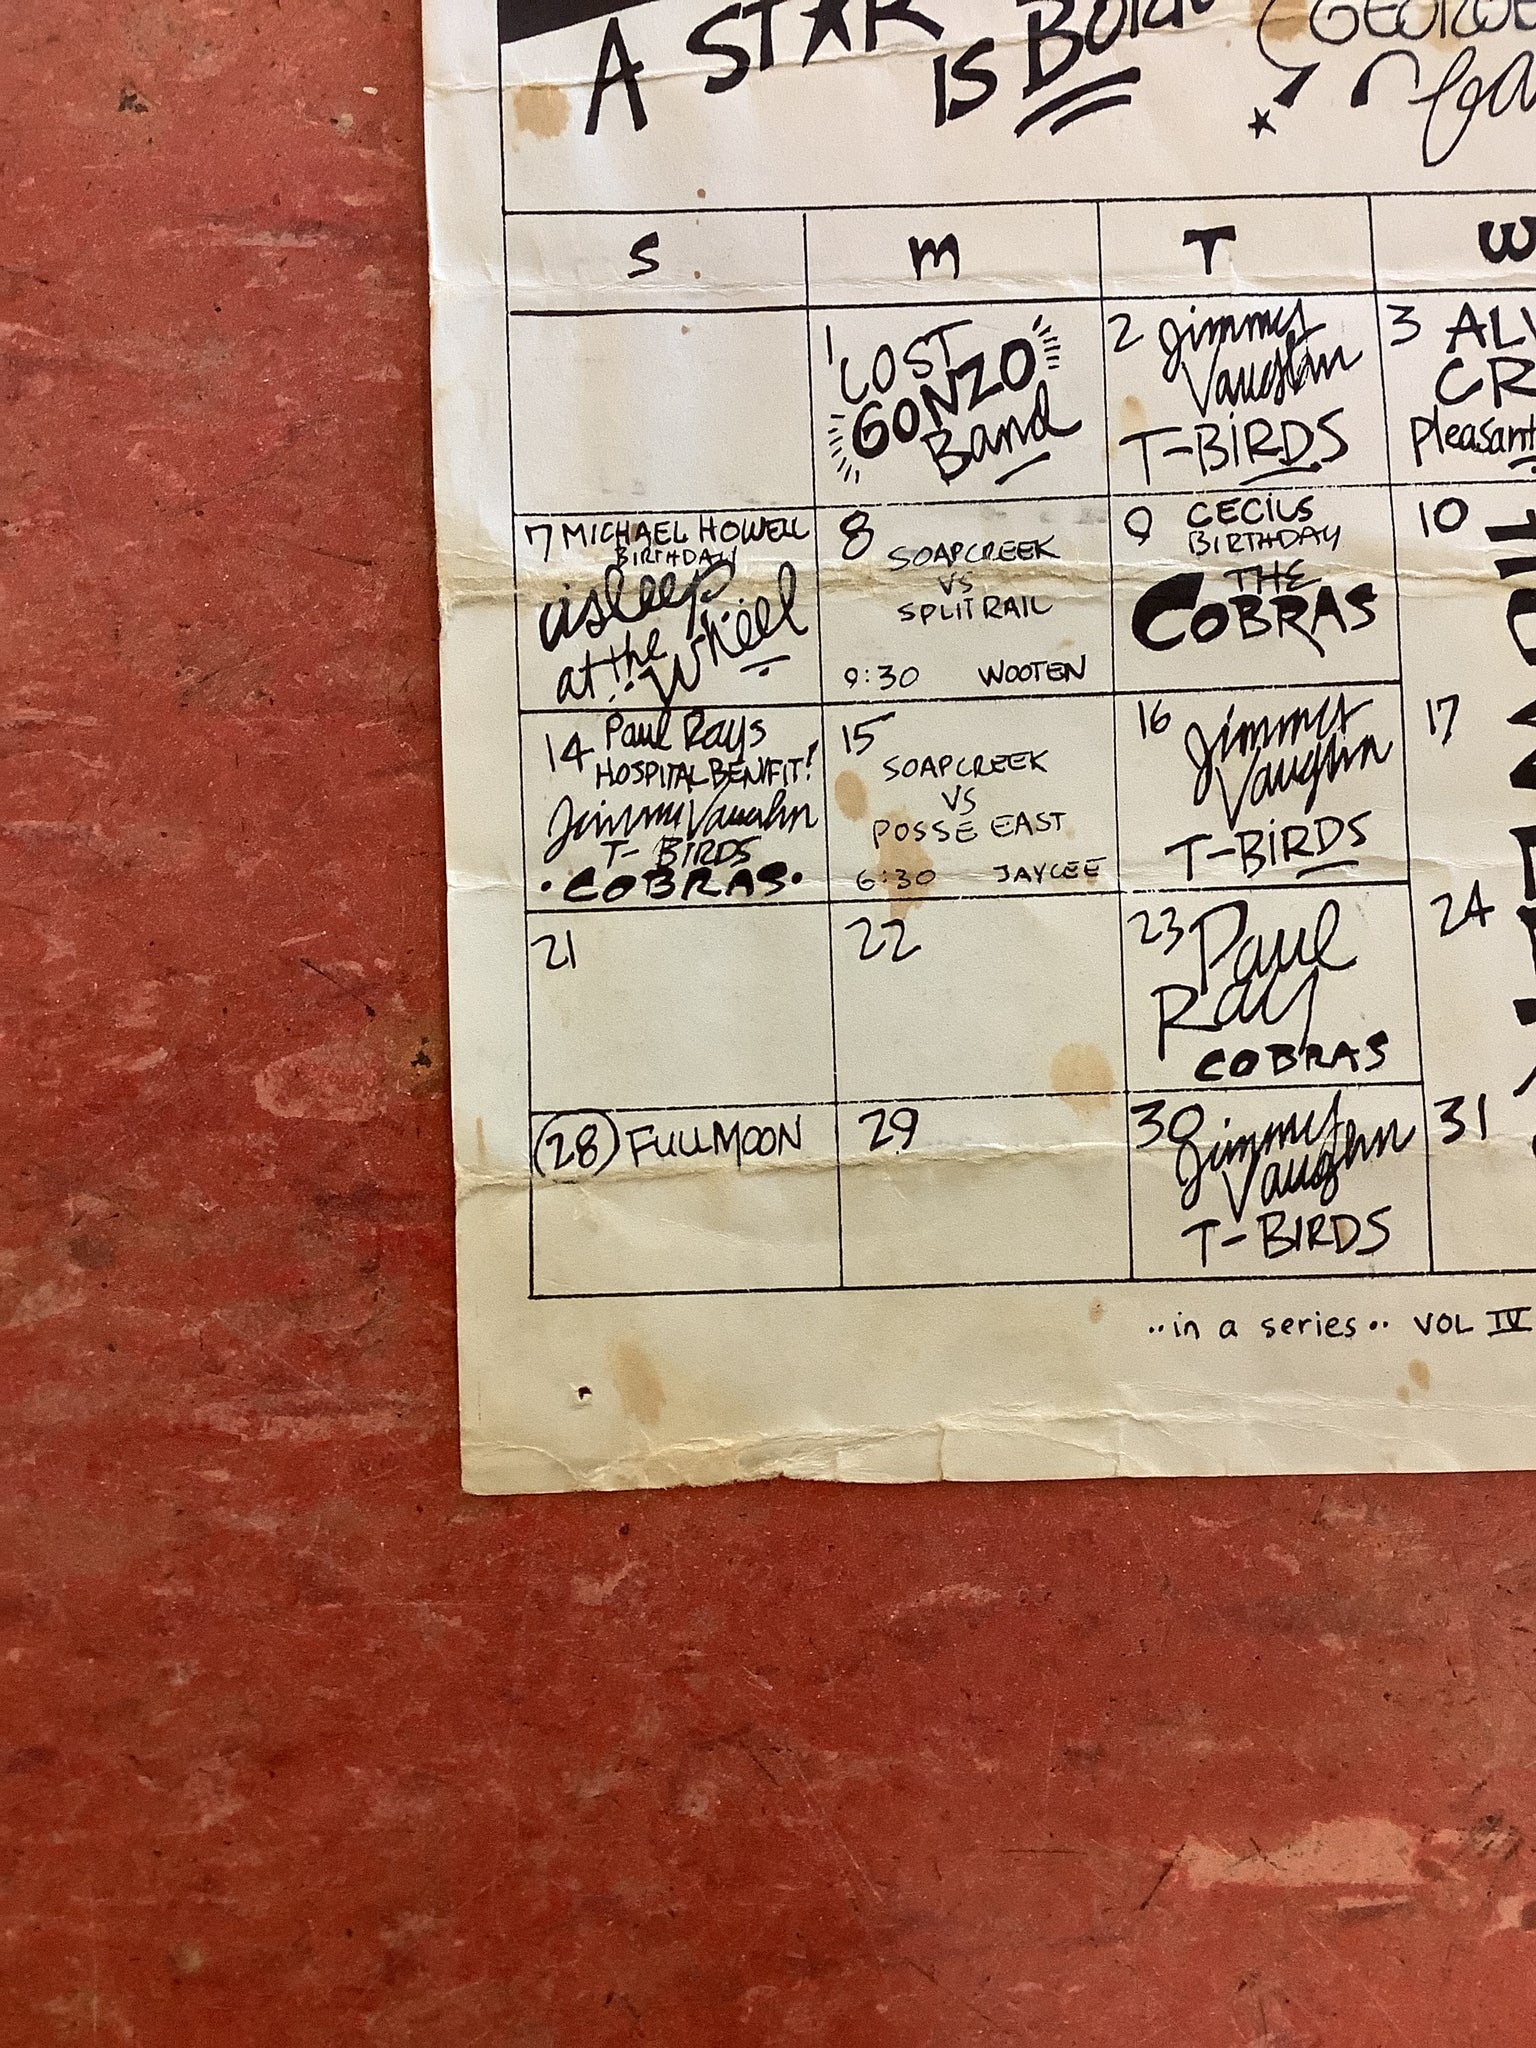 A STAR
IS BORN
S M T W
1 LOST
GONZO
Band
2 Jimmy
Vaughn
T-BIRDS
3
Pleasant
7 MICHAEL HOWELL
BIRTHDAY
asleep
at the Wheel
8
SOAPCREEK
VS
SPLITRAIL
9:30 WOOTEN
9 CECILS
BIRTHDAY
THE
COBRAS
10
14 Paul Rays
HOSPITAL BENIFIT!
Jimmy Vaughn
T-BIRDS
•COBRAS•
15
SOAPCREEK
VS
POSSE EAST
6:30 JAYCEE
16 Jimmy
Vaughn
T-BIRDS
17
21
22
23 Paul
Ray
COBRAS
24
(28) FULL MOON
29
30 Jimmy
Vaughn
T-BIRDS
31
..in a series.. VOL IV